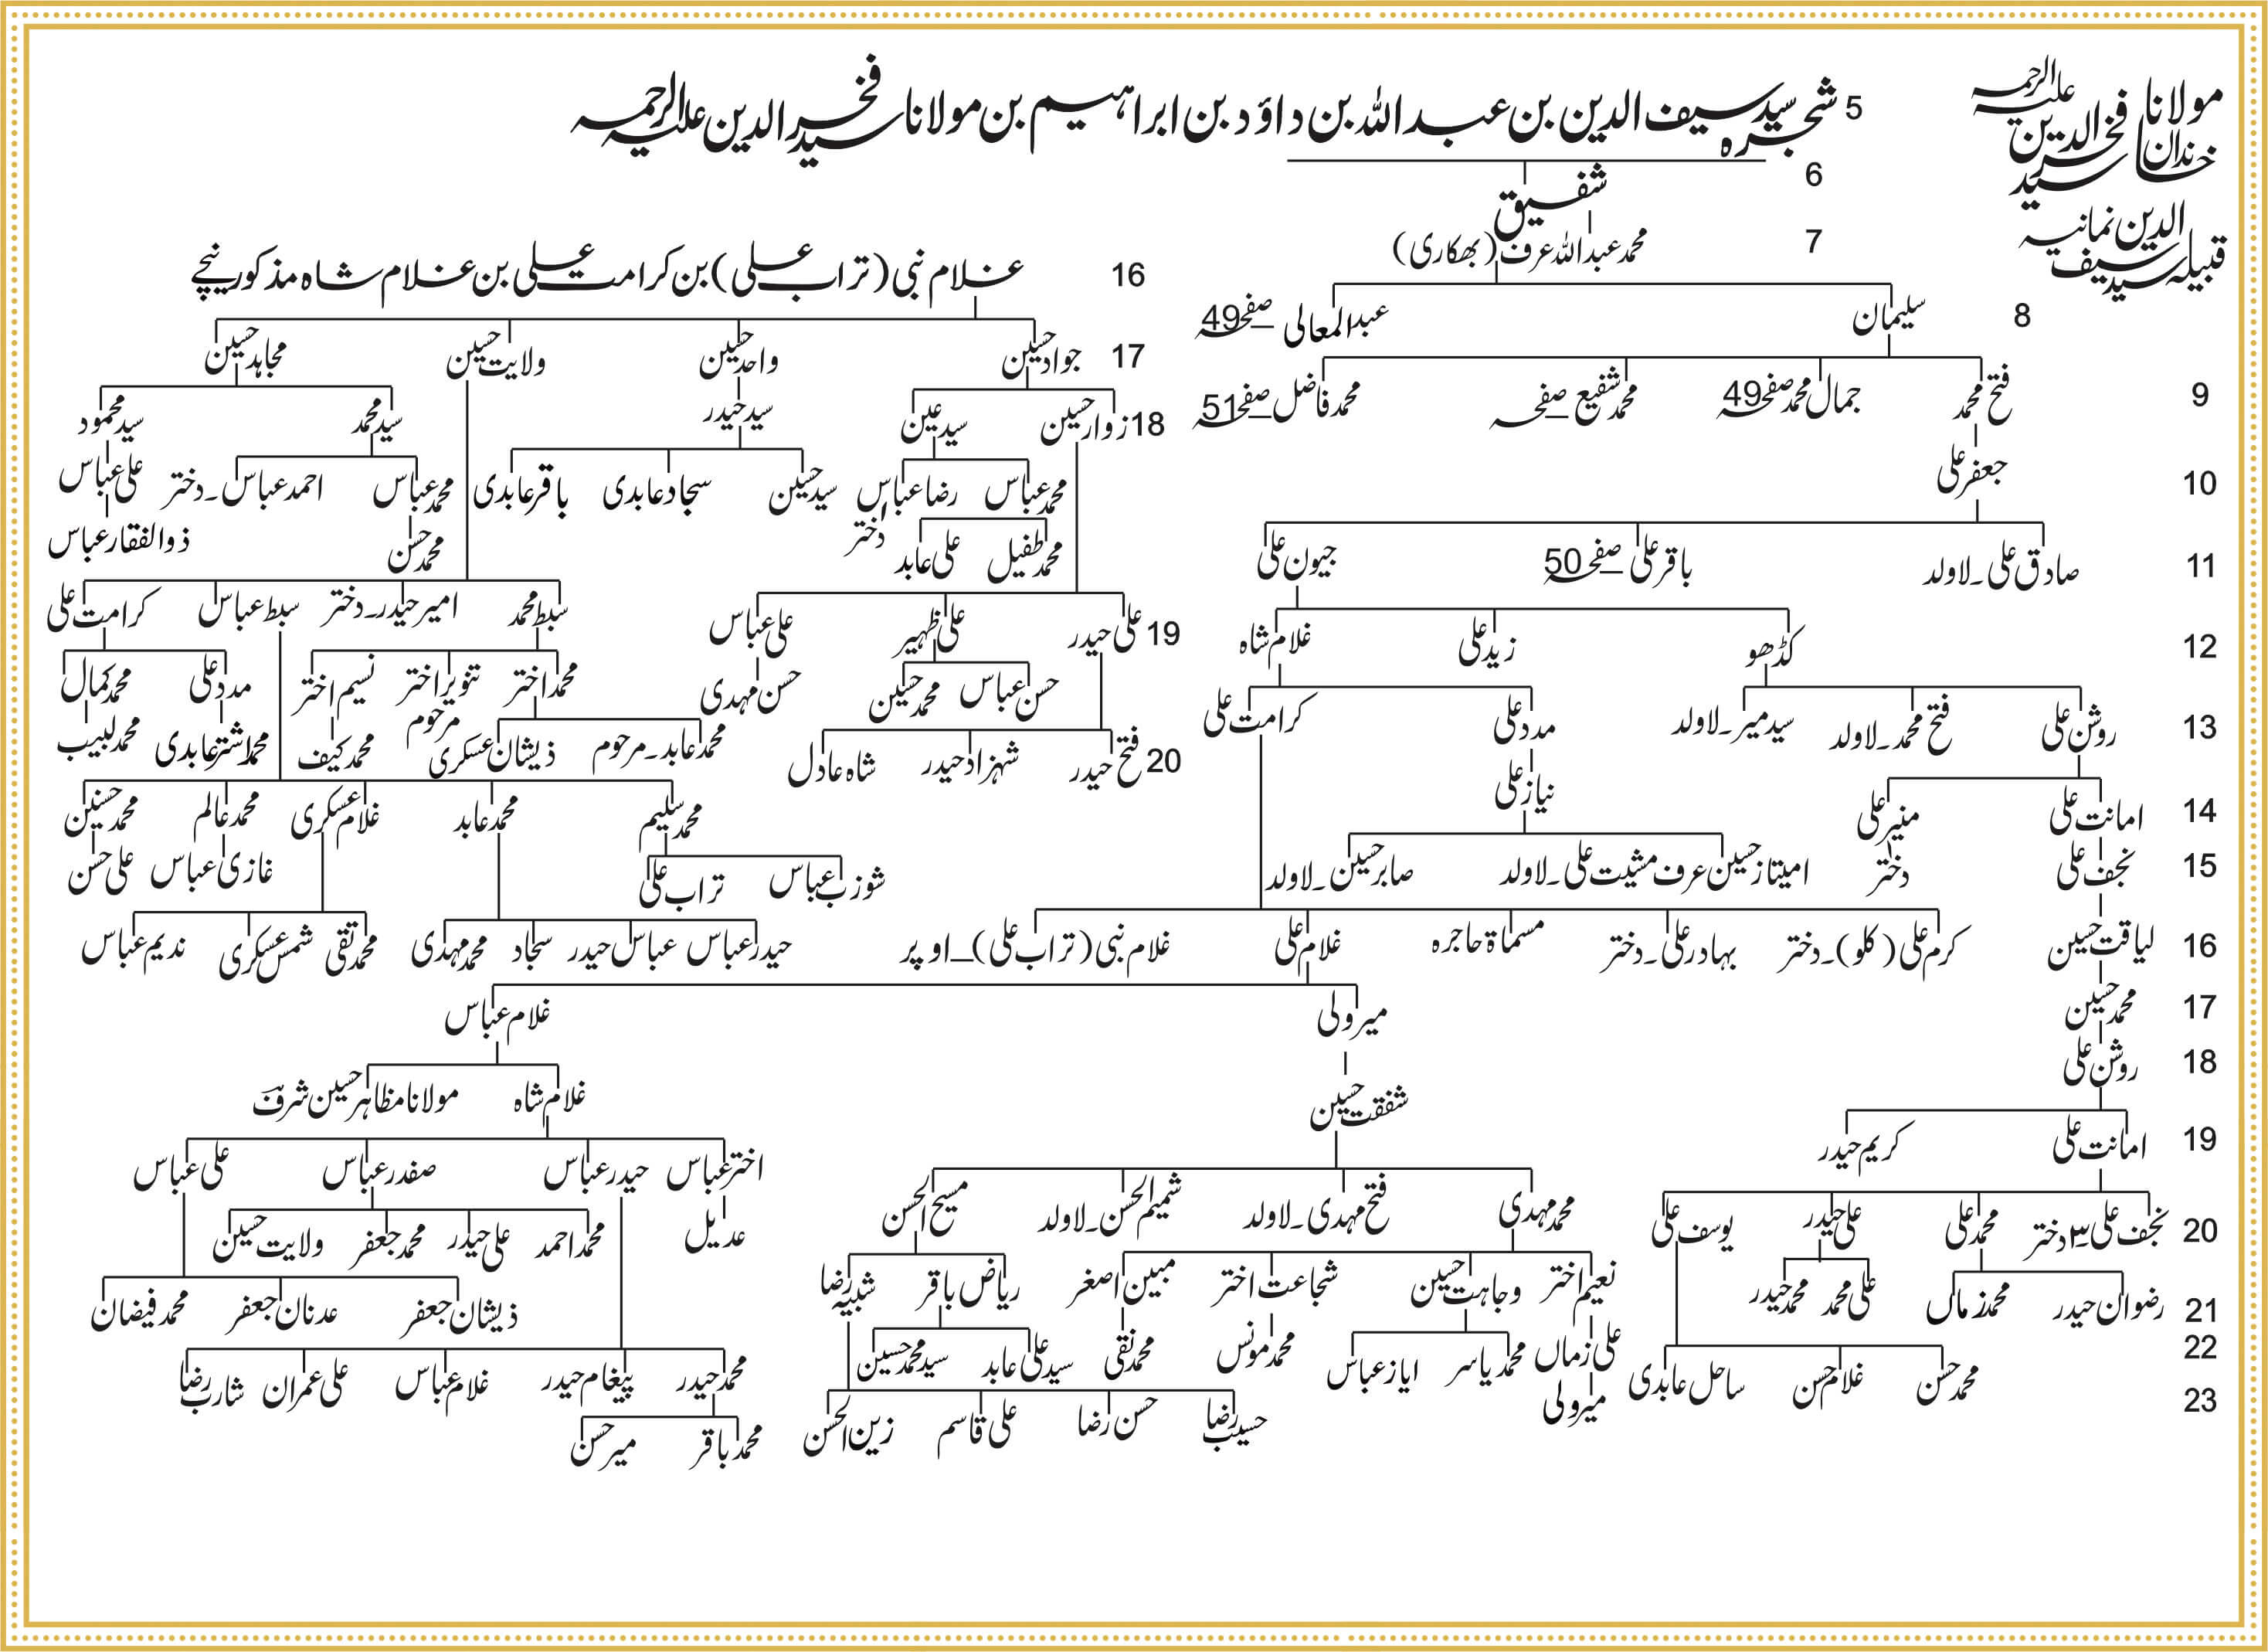 مولانا سید فخر الدین علیہ الرحمہ
خاندان
قبیلہ سید سیف الدین نمانیہ
5 شجرہ سید سیف الدین بن عبد اللہ بن داؤد بن ابراہیم بن مولانا سید فخر الدین علیہ الرحمہ
6 شفیق
7 محمد عبد اللہ عرف (بھکاری)
8 سلیمان عبد المعالی صفحہ 49
9 فتح محمد جمال محمد صفحہ 49 محمد شفیع صفحہ محمد فاضل صفحہ 51
10 جعفر علی
11 صادق علی۔لاولد باقر علی صفحہ 50 جیون علی
12 کڈھو زید علی غلام شاہ
13 روشن علی فتح محمد۔لاولد سید میر۔لاولد مدد علی کرامت علی
نیاز علی
14 امانت علی منیر علی
15 نجف علی دختر امتیاز حسین عرف مشیت علی۔لاولد صابر حسین۔لاولد
16 لیاقت حسین کرم علی (کلو)۔دختر بہادر علی۔دختر مسماۃ حاجرہ غلام علی غلام نبی (تراب علی)_اوپر
17 محمد حسین میر ولی غلام عباس
18 روشن علی شفقت حسین غلام شاہ مولانا مظاہر حسین شرف
19 امانت علی کریم حیدر
20 نجف علی ۳ دختر محمد علی علی حیدر یوسف علی
21 رضوان حیدر محمد زماں علی محمد محمد حیدر
22 محمد حسن غلام حسن ساحل عابدی
23
محمد مہدی فتح مہدی۔لاولد شمیم الحسن۔لاولد مسیح الحسن
نعیم اختر وجاہت حسین شجاعت اختر مبین اصغر ریاض باقر شبیہ رضا
علی زماں محمد یاسر ایاز عباس محمد مونس محمد نقی سید علی عابد سید محمد حسین
میر ولی
حسیب رضا حسن رضا علی قاسم زین الحسن
اختر عباس حیدر عباس صفدر عباس علی عباس
عدیل محمد احمد علی حیدر محمد جعفر ولایت حسین
ذیشان جعفر عدنان جعفر محمد فیضان
محمد حیدر پیغام حیدر غلام عباس علی عمران شارب رضا
محمد باقر میر حسن
16 غلام نبی (تراب علی) بن کرامت علی بن غلام شاہ مذکور نیچے
17 جواد حسین واحد حسین ولایت حسین مجاہد حسین
18 زوار حسین سید عین سید حیدر سید محمد سید محمود
محمد عباس رضا عباس سید حسین سجاد عابدی باقر عابدی محمد عباس احمد عباس۔دختر علی عباس
محمد طفیل علی عابد دختر محمد حسن ذوالفقار عباس
19 علی حیدر علی ظہیر علی عباس سبط محمد امیر حیدر۔دختر سبط عباس کرامت علی
حسن عباس محمد حسین حسن مہدی محمد اختر تنویر اختر مرحوم نسیم اختر مدد علی محمد کمال
20 فتح حیدر شہزاد حیدر شاہ عادل محمد عابد۔مرحوم ذیشان عسکری محمد کیف محمد اشتر عابدی محمد لبیب
محمد سلیم محمد عابد غلام عسکری محمد عالم محمد حسنین
شوزب عباس تراب علی غازی عباس علی حسن
حیدر عباس عباس حیدر سجاد محمد مہدی محمد تقی شمس عسکری ندیم عباس